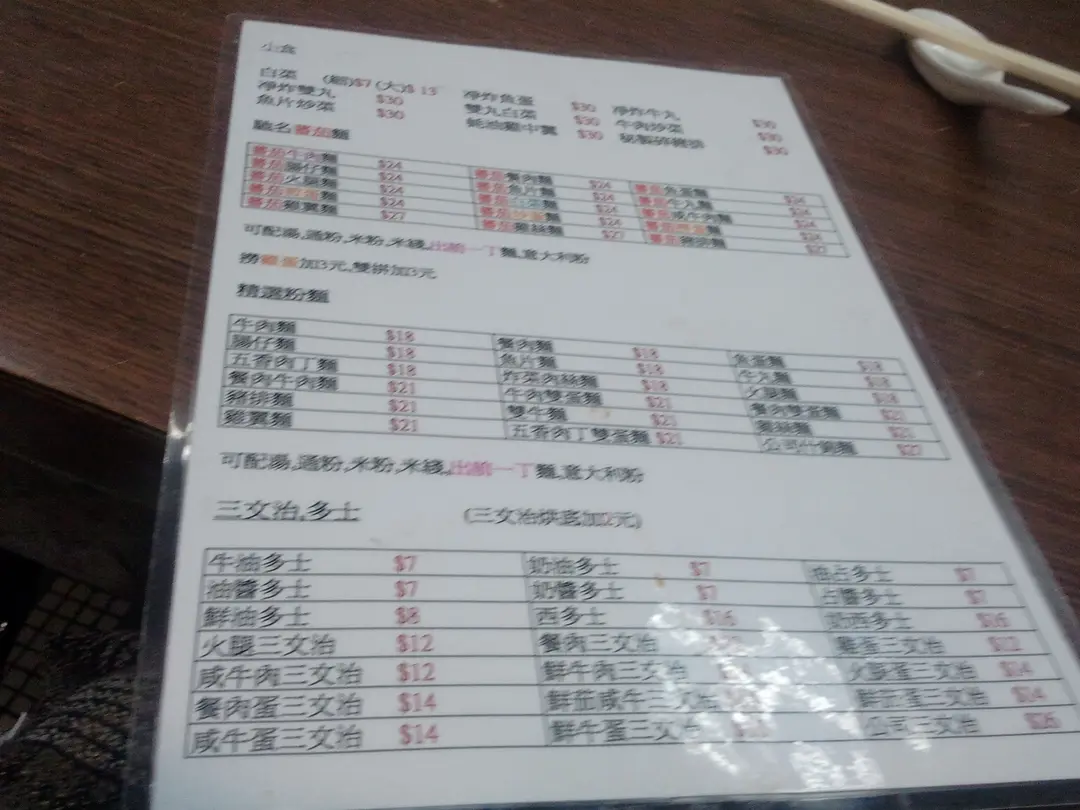 小食
白菜 (細)$7 (大)$ 13
淨炸雙丸 $30 淨炸魚蛋 $30 淨炸牛丸 $30
魚片炒菜 $30 雙丸白菜 $30 牛肉炒菜 $30
蚝油雞中翼 $30 秘製炸豬排 $30
馳名蕃茄麵
蕃茄牛肉麵 $24 蕃茄餐肉麵 $24 蕃茄魚蛋麵 $24
蕃茄腸仔麵 $24 蕃茄魚片麵 $24 蕃茄牛丸麵 $24
蕃茄火腿麵 $24 蕃茄白菜麵 $24 蕃茄咸牛肉麵 $24
蕃茄麵 $24 蕃茄炒蛋麵 $24 蕃茄麵 $24
蕃茄雞翼麵 $27 蕃茄雞絲麵 $27 蕃茄豬排麵 $27
可配湯,通粉,米粉,米綫,出前一丁麵,意大利粉
撈雞蛋加3元,雙拼加3元
精選粉麵
牛肉麵 $18 餐肉麵 $18 魚蛋麵 $18
腸仔麵 $18 魚片麵 $18 牛丸麵 $18
五香肉丁麵 $18 炸菜肉絲麵 $18 火腿麵 $18
餐肉牛肉麵 $21 牛肉雙蛋麵 $21 餐肉雙蛋麵 $21
豬排麵 $21 雙牛麵 $21 雞絲麵 $21
雞翼麵 $21 五香肉丁雙蛋麵 $21 公司什錦麵 $27
可配湯,通粉,米粉,米綫,出前一丁麵,意大利粉
三文治,多士 (三文治烘底加2元)
牛油多士 $7 奶油多士 $7 油占多士 $7
油醬多士 $7 奶醬多士 $7 占醬多士 $7
鮮油多士 $8 西多士 $16 奶西多士 $16
火腿三文治 $12 餐肉三文治 雞蛋三文治 $12
咸牛肉三文治 $12 鮮牛肉三文治 火腿蛋三文治 $14
餐肉蛋三文治 $14 鮮茄咸牛三文治 鮮茄蛋三文治 $14
咸牛蛋三文治 $14 鮮牛蛋三文治 公司三文治 $26